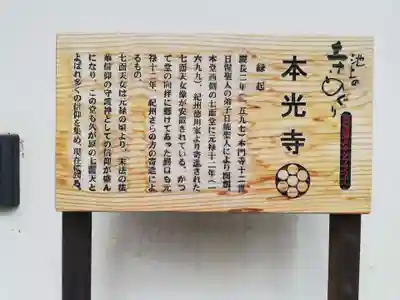 池上の
寺めぐり
本光寺
縁起
慶長二年(一五九七)本門寺十二世
日惺聖人の弟子日能聖人により開創。
本堂西側の七面堂に元禄十二年(一
六九九)、紀州徳川家より寄進された
七面天女像が安置されている。かつ
て堂の向拝に懸けてあった鰐口も元
禄十二年、紀州さらの方の寄進によ
るもの。
七面天女は元禄の頃より、末法の法
華信仰の守護神としての信仰が盛ん
になり、この堂も矢が原の七面天と
よばれ多くの信仰を集め、現在に到る。